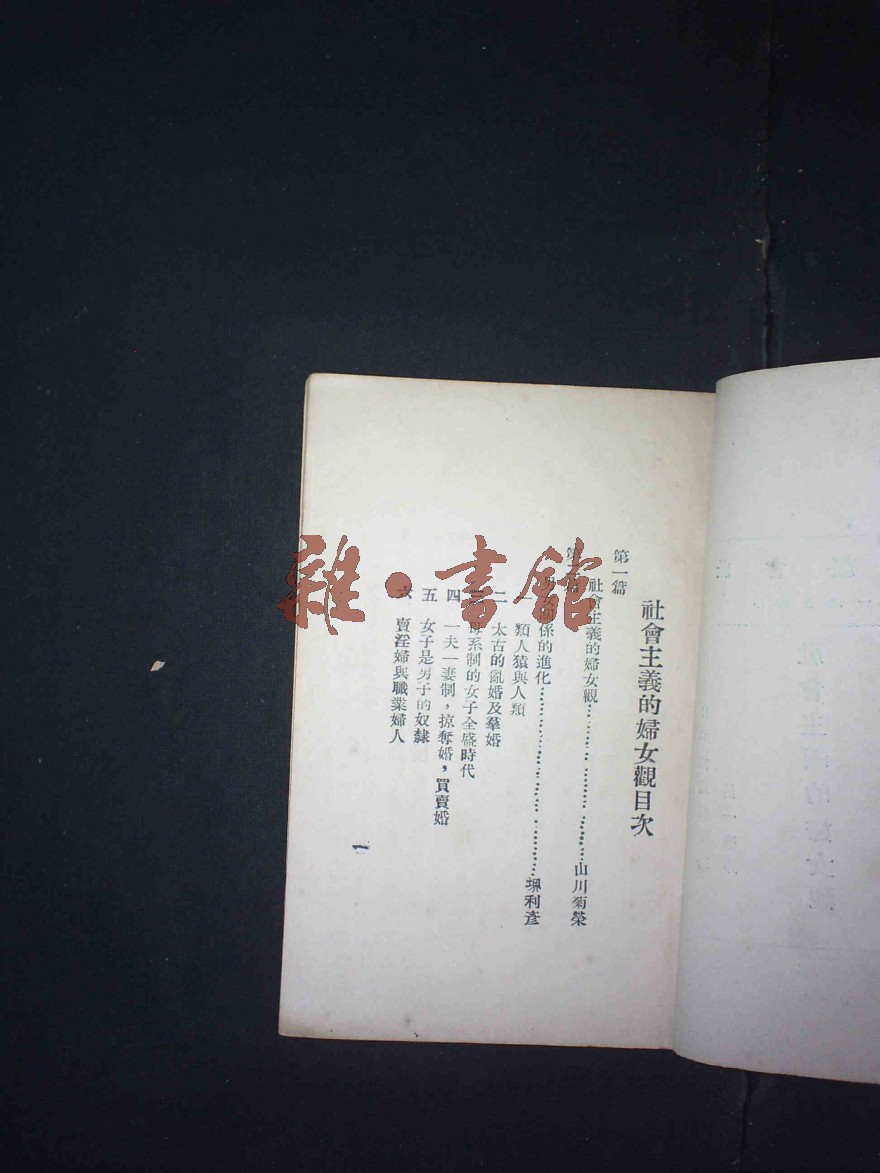 社會主義的婦女觀目次
第一篇
社會主義的婦女觀……………………山川菊榮
第二篇
男女關係的進化……………………堺利彦
一 類人猿與人類
二 太古的亂婚及羣婚
三 母系制的女子全盛時代
四 一夫一妻制，掠奪婚，買賣婚
五 女子是男子的奴隸
六 賣淫婦與職業婦人
一
雜·書館